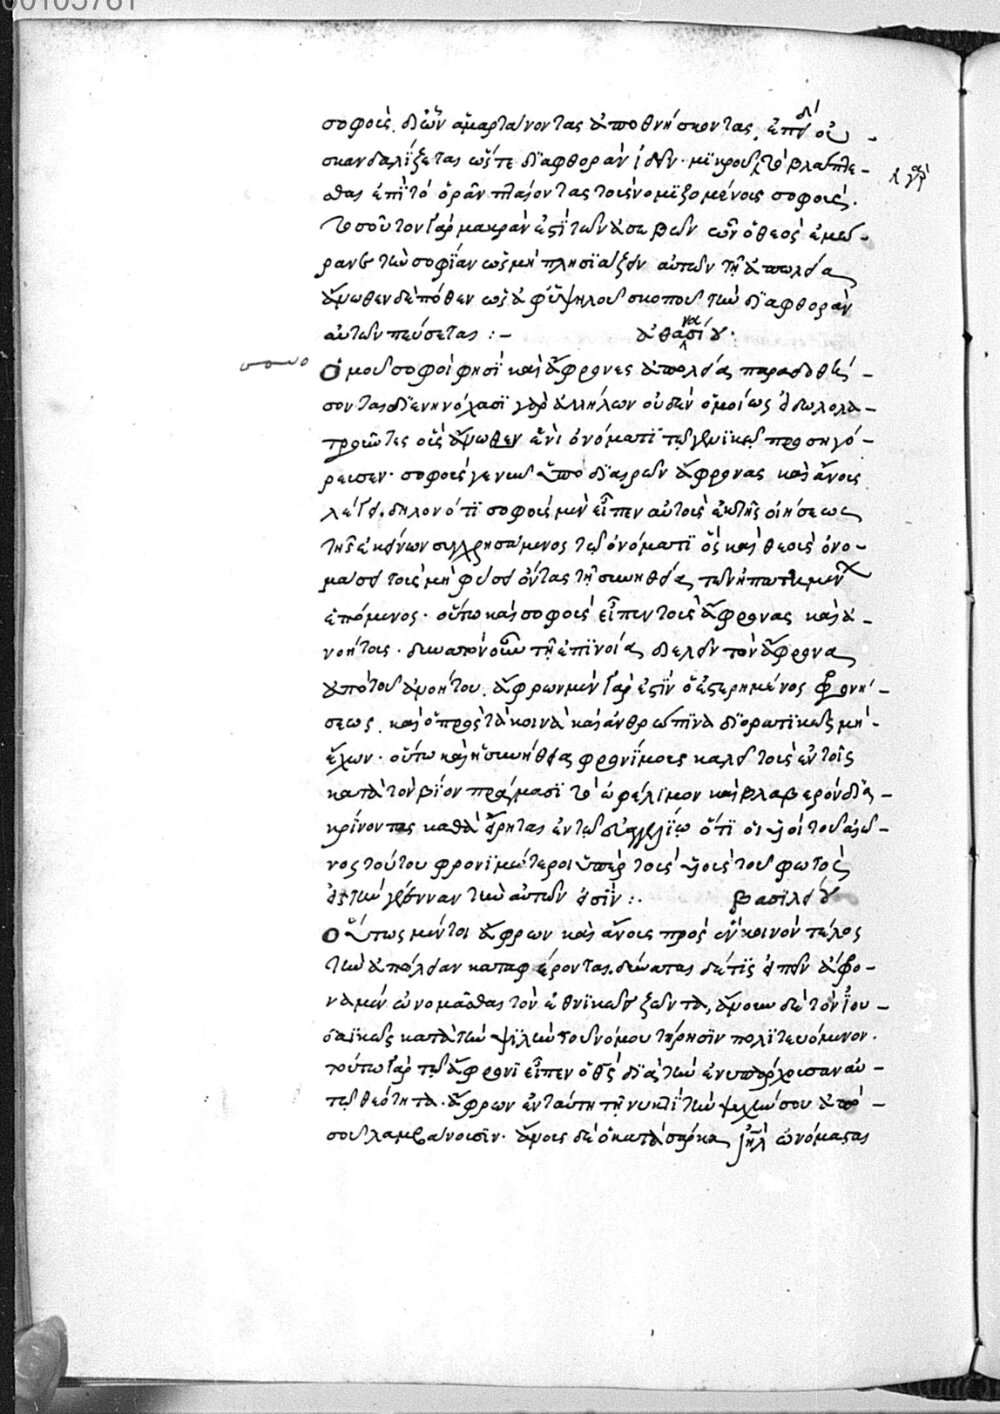 00105761
σοφοὺς. διὧν ἁμαρτάνοντας ἀποθνήσκοντας, ἐπεὶ δὲ οὐ
σκανδαλίζεται ὥστε διαφθορὰν ἰδεῖν· μὴ κρούε τὸ βλάπτε-
σθαι ἐπὶ τὸ ὁρᾶν πταίοντας τοὺς νομιζομένους σοφούς.
τοσοῦτον γὰρ μακράν ἐστι τῶν ἀσεβῶν ὧν ὁ θεὸς ἐμώ-
ρανε τὴν σοφίαν ὡς μὴ πλησιάζειν αὐτῶν τῇ ἀπωλεία
ἄνωθεν δέ ποθεν ὡς ἀφ' ὑψηλοῦ σκοποῦ τὴν διαφθορὰν
αὐτῶν πεύσεται :– ἀθανασίου·
Ὁμοῦ σοφοί φησι καὶ ἄφρονες ἀπωλεία παραδοθή-
σονται διενηνόχασι γὰρ ἀλλήλων οὐδὲν ὁμοίως εἰδωλολα-
τροῦντες οὓς ἄνωθεν ἑνὶ ὀνόματι τῷ γενικῷ προσηγό-
ρευσεν· σοφοὺς γε νῦν ὑποδιαιρῶν ἄφρονας καὶ ἄνους
λέγει, δηλονότι σοφοὺς μὲν εἶπεν αὐτοὺς ἐκ τῆς οἰήσεως
τῆς ἐκείνων συγχρησάμενος τῷ ὀνόματι ὡς καὶ θεοὺς ὀνο-
μάσει τοὺς μὴ φύσει ὄντας τῇ συνηθεία τῶν ἠπατημένων
ἑπόμενος· οὕτω καὶ σοφοὺς εἶπεν τοὺς ἄφρονας καὶ ἀ-
νοήτους· δυνατὸν οὖν τῇ ἐπινοία διελεῖν τὸν ἄφρονα
ἀπὸ τοῦ ἀνοήτου. ἄφρων μὲν γάρ ἐστιν ὁ ἐστερημένος φρονή-
σεως, καὶ ὁ πρὸς τὰ κοινὰ καὶ ἀνθρώπινα διορατικῶς μὴ
ἔχων· οὕτω καὶ ἡ συνήθεια φρονίμους καλεῖ τοὺς ἐν τοῖς
κατὰ τὸν βίον πράγμασι τὸ ὠφέλιμον καὶ βλαβερὸν δια-
κρίνοντας καθὰ εἴρηται ἐν τῷ εὐαγγελίῳ ὅτι οἱ υἱοὶ τοῦ αἰῶ-
νος τούτου φρονιμώτεροι ὑπὲρ τοὺς υἱοὺς τοῦ φωτὸς
εἰς τὴν γένναν τὴν αὐτῶν εἰσίν :. βασιλείου
Οὕτως μέντοι ἄφρων καὶ ἄνους πρὸς ἓν κοινὸν τέλος
τὴν ἀπώλειαν καταφέρονται. δύναται δέ τις εἰπεῖν ἄφρο-
να μὲν ὠνομάσθαι τὸν ἐθνικῶς ζῶντα, ἄνουν δὲ τὸν Ἰου-
δαϊκῶς κατὰ τὴν ψιλὴν τοῦ νόμου τήρησιν πολιτευόμενον.
τούτω γὰρ τῷ ἄφρονι εἶπεν ὁ θς διὰ τὴν ἐνυπάρχουσαν αὐ-
τῷ θεότητα· ἄφρων ἐν ταύτῃ τῇ νυκτὶ τὴν ψυχήν σου ἀπὸ
σοῦ λαμβάνουσιν· ἄνους δὲ ὁ κατὰ σάρκα ἰηλ ὠνόμασται